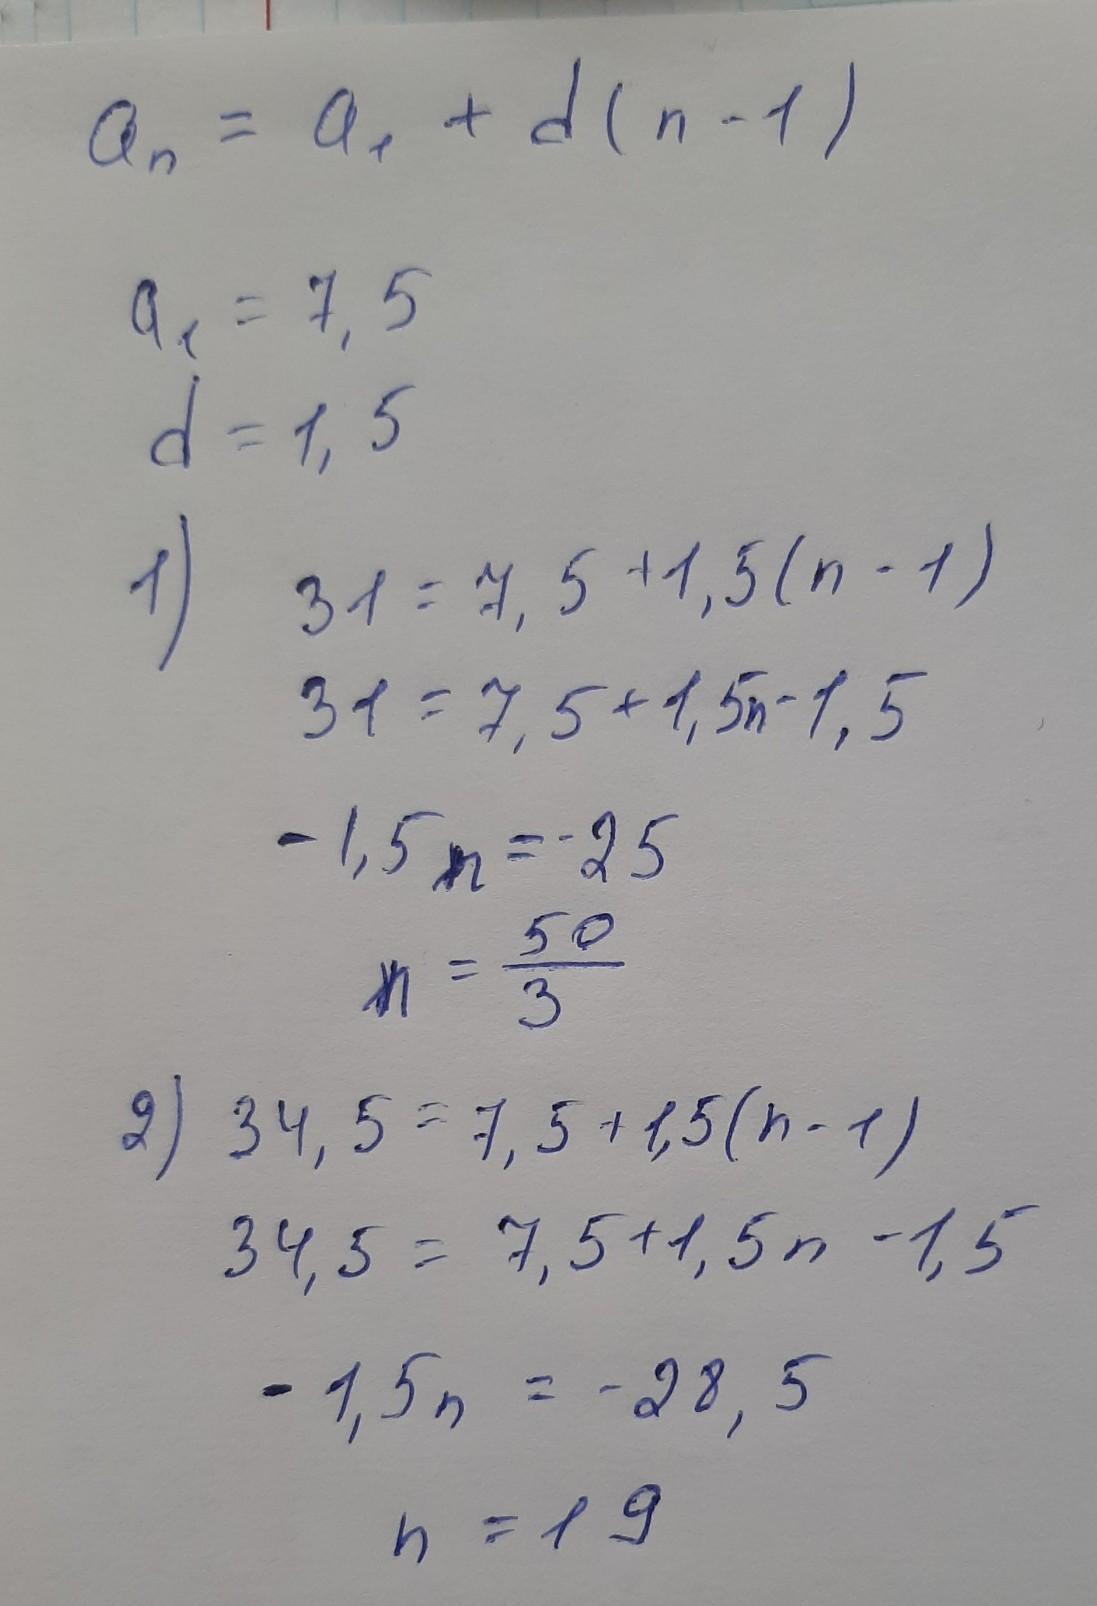 aₙ = a₁ + d(n-1)
a₁ = 7,5
d = 1,5
1) 31 = 7,5 + 1,5(n-1)
31 = 7,5 + 1,5n - 1,5
-1,5n = -25
n = 50/3
2) 34,5 = 7,5 + 1,5(n-1)
34,5 = 7,5 + 1,5n - 1,5
-1,5n = -28,5
n = 19